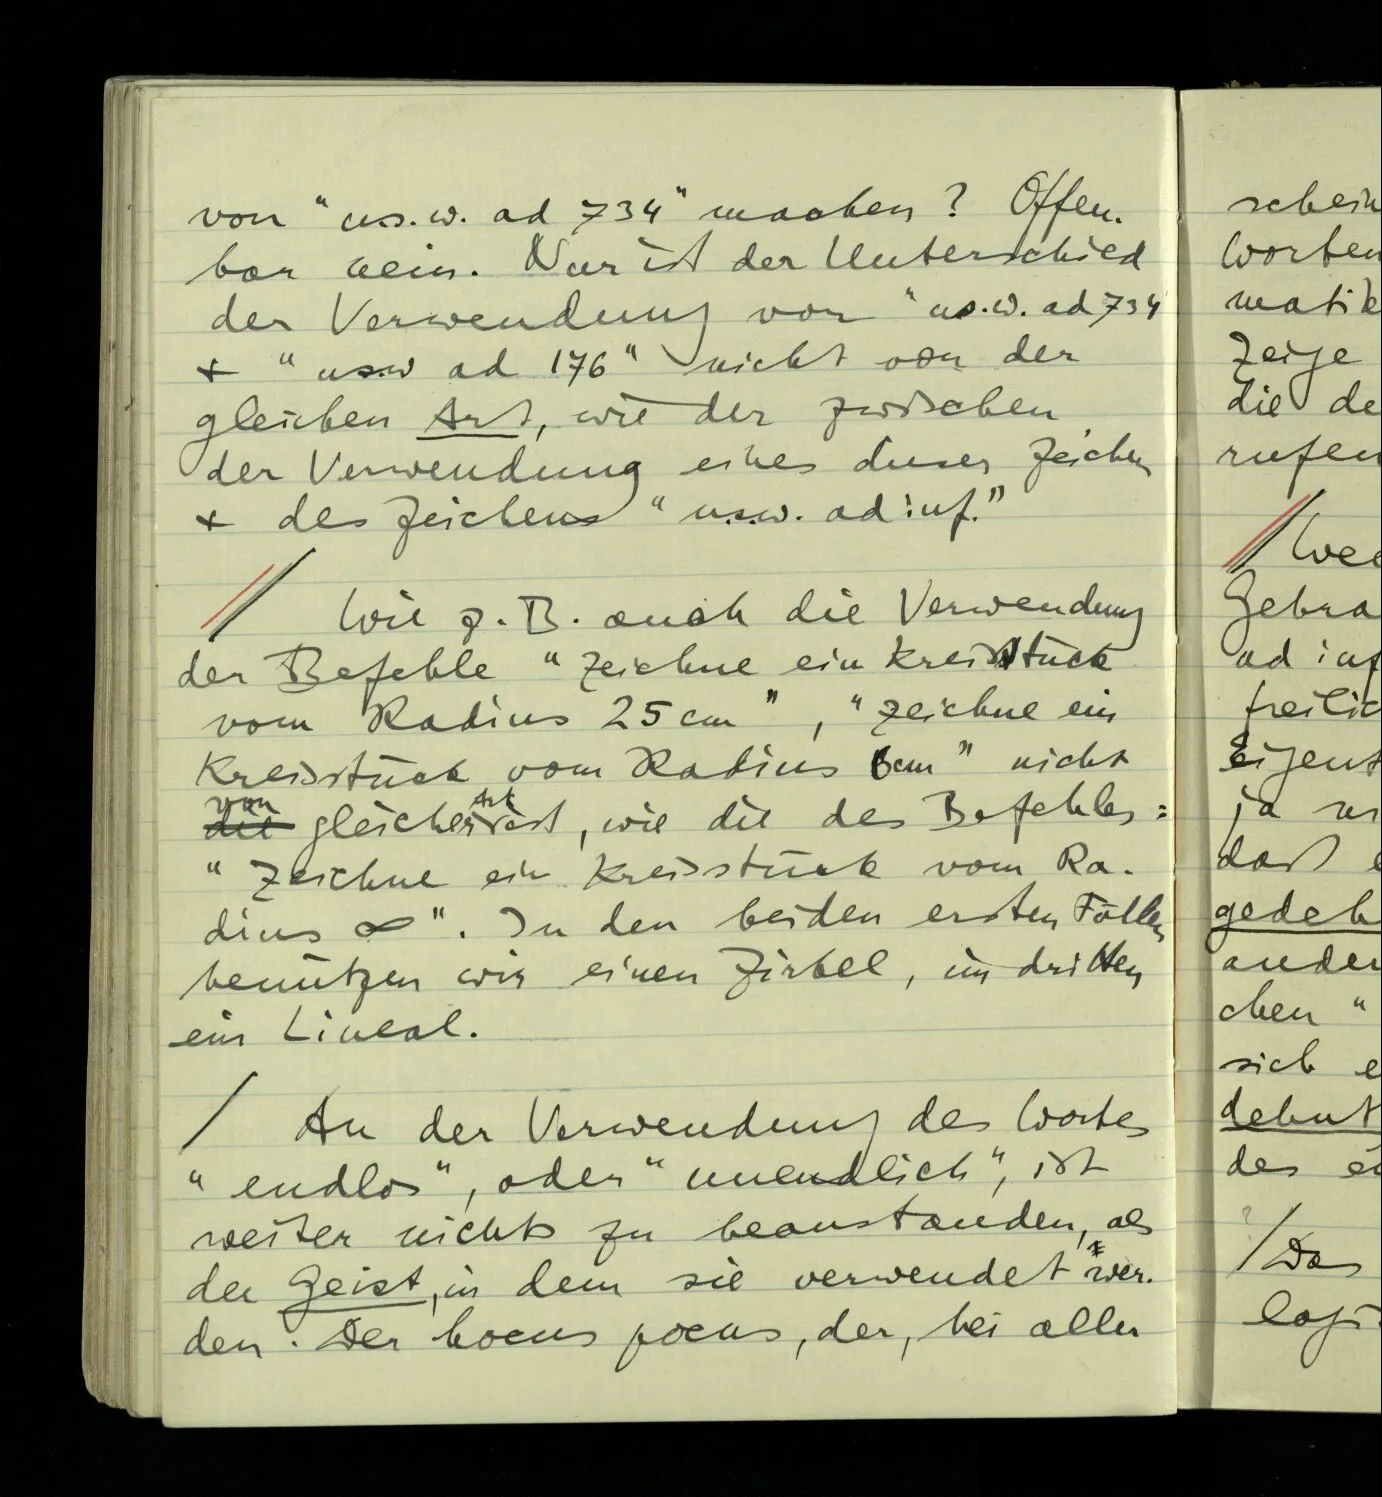 von "u.s.w. ad 734" machen? Offen-
bar nein. Nur ist der Unterschied
der Verwendung von "u.s.w. ad 734"
+ "usw ad 176" nicht von der
gleichen Art, wie der zwischen
der Verwendung eines dieser Zeichen
+ des Zeichens "u.s.w. ad inf."
// Wie z.B. auch die Verwendung
der Befehle "zeichne ein Kreisstück
vom Radius 25 cm", "zeichne ein
Kreisstück vom Radius 6cm" nicht
von Art
die gleicher ist, wie die des Befehles:
"Zeichne ein Kreisstück vom Ra-
dius ∞". In den beiden ersten Fällen
benützen wir einen Zirkel, im dritten
ein Lineal.
/ An der Verwendung des Wortes
"endlos", oder "unendlich", ist
weiter nichts zu beanstanden, als
der Geist, in dem sie verwendet wer-
den. Der hocus pocus, der, bei aller
schein
Worten
matik
Zeige
die de
rufen
//
Gebra
ad inf
freilic
Eigent
ja
daß e
gedeh
ander
chen "
sich e
dehnt
des ei
? / Das
logi